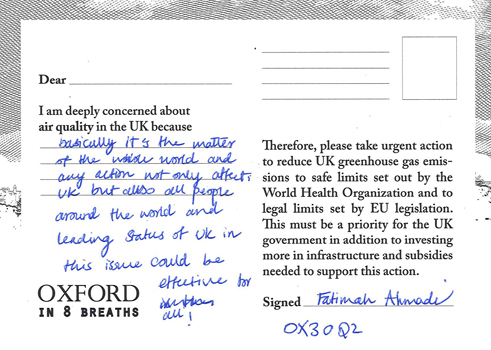 Dear
I am deeply concerned about
air quality in the UK because
basically it's the matter
of the whole world and
any action not only affect
UK but also all people
around the world and
leading status of UK in
this issue could be
effective for
all!
OXFORD
IN 8 BREATHS
Therefore, please take urgent action
to reduce UK greenhouse gas emis-
sions to safe limits set out by the
World Health Organization and to
legal limits set by EU legislation.
This must be a priority for the UK
government in addition to investing
more in infrastructure and subsidies
needed to support this action.
Signed Fatimah Ahmadi
OX3 0Q2